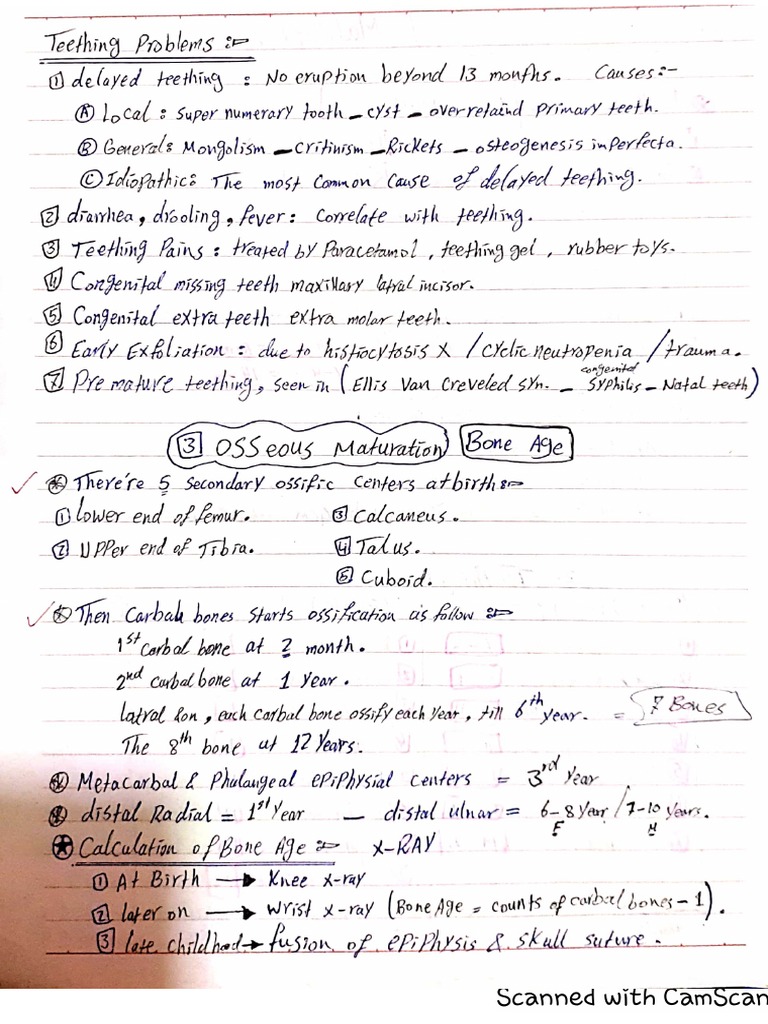 Teething Problems :-
1 delayed teething : No eruption beyond 13 months. Causes:-
A Local : super numerary tooth – cyst – over retaind primary teeth.
B General: Mongolism – Critinism – Rickets – osteogenesis imperfecta.
C Idiopathic: The most Common Cause of delayed teething.
2 diarrhea, drooling, fever: Correlate with teething.
3 Teething Pains : treated by Paracetamol, teething gel, rubber toys.
4 Congenital missing teeth maxillary latral incisor.
5 Congenital extra teeth extra molar teeth.
6 Early Exfoliation : due to histiocytosis X / Cyclic neutropenia / trauma.
7 Pre mature teething, seen in (Ellis Van Creveled syn. – congenital Syphilis – Natal teeth)
3 OSSeous Maturation Bone Age
There're 5 Secondary ossific Centers at birth :-
1 lower end of femur. 3 Calcaneus.
2 UPPer end of Tibia. 4 Talus.
5 Cuboid.
Then Carbal bones starts ossification as follow :-
1st Carbal bone at 2 month.
2nd Carbal bone at 1 year.
latral lon, each Carbal bone ossify each year, till 6th year. = 7 Bones
The 8th bone at 12 Years.
Metacarbal & Phalangeal ePiPhysial centers = 3rd Year
distal Radial = 1st Year – distal ulnar = 6-8 Year / 7-10 Years.
F M
Calculation of Bone Age :- X-RAY
1 At Birth → Knee x-ray
2 later on → wrist x-ray (Bone Age = counts of carbal bones - 1).
3 late childhood → fusion of ePiPhysis & skull suture.
Scanned with CamScan